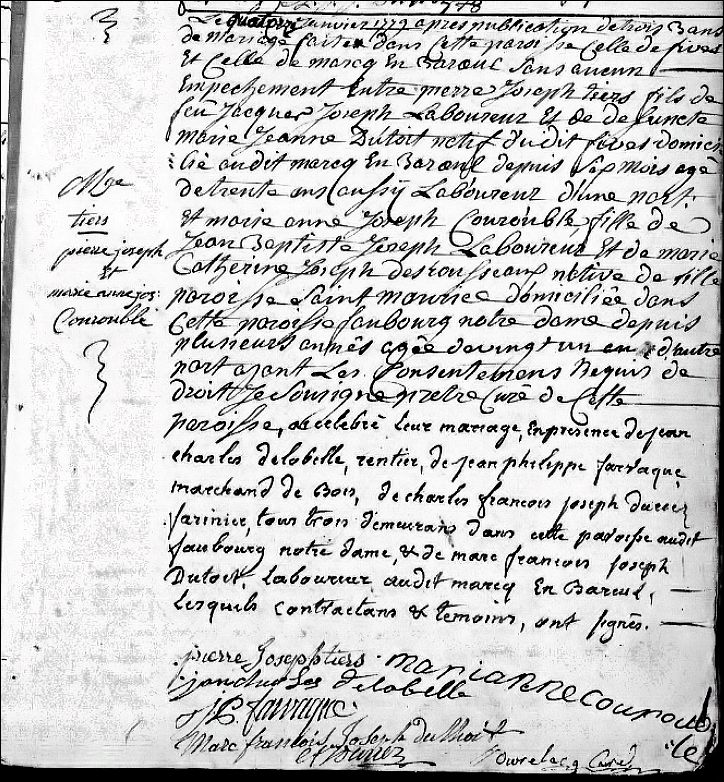 778
Le quatorze Janvier 1779 apres publication de trois Bans
de mariage faite dans Cette paroisse Celle de fives
Et Celle de marcq En Barœul Sans aucun
Empechement Entre pierre Joseph tiers fils de
feu Jacques Joseph Laboureur Et de defuncte
marie Jeanne Dutoit natif dudit fives domici
lié audit marcq En Barœul depuis Six mois agé
de trente ans aussy Laboureur d'une part
Et marie anne Joseph Courouble fille de
Jean Baptiste Joseph Laboureur Et de marie
Catherine Joseph desrousseaux native de lille
paroisse Saint maurice domiciliée dans
Cette paroisse faubourg notre dame depuis
plusieurs années agée de vingt un an d'autre
part ajant Les Consentemens Requis de
droit Je Sousigné pretre Curé de Cette
paroisse, ai celebré leur mariage, En presence de jean
charles delobelle, rentier, de jean philippe farvaque,
marchand de Bois, de charles francois joseph
farinier, tous trois demeurans dans cette paroisse audit
faubourg notre dame, & de marc francois joseph
Dutoit, Laboureur audit marcq En Bareul,
Lesquels contractans & temoins, ont signés.
Mge
tiers
pierre joseph
Et
marie anne jos:
Courouble
pierre Joseph tiers marianne courouble
jan charles delobelle
J P farvaque
Marc francois Joseph du thoit
Curé